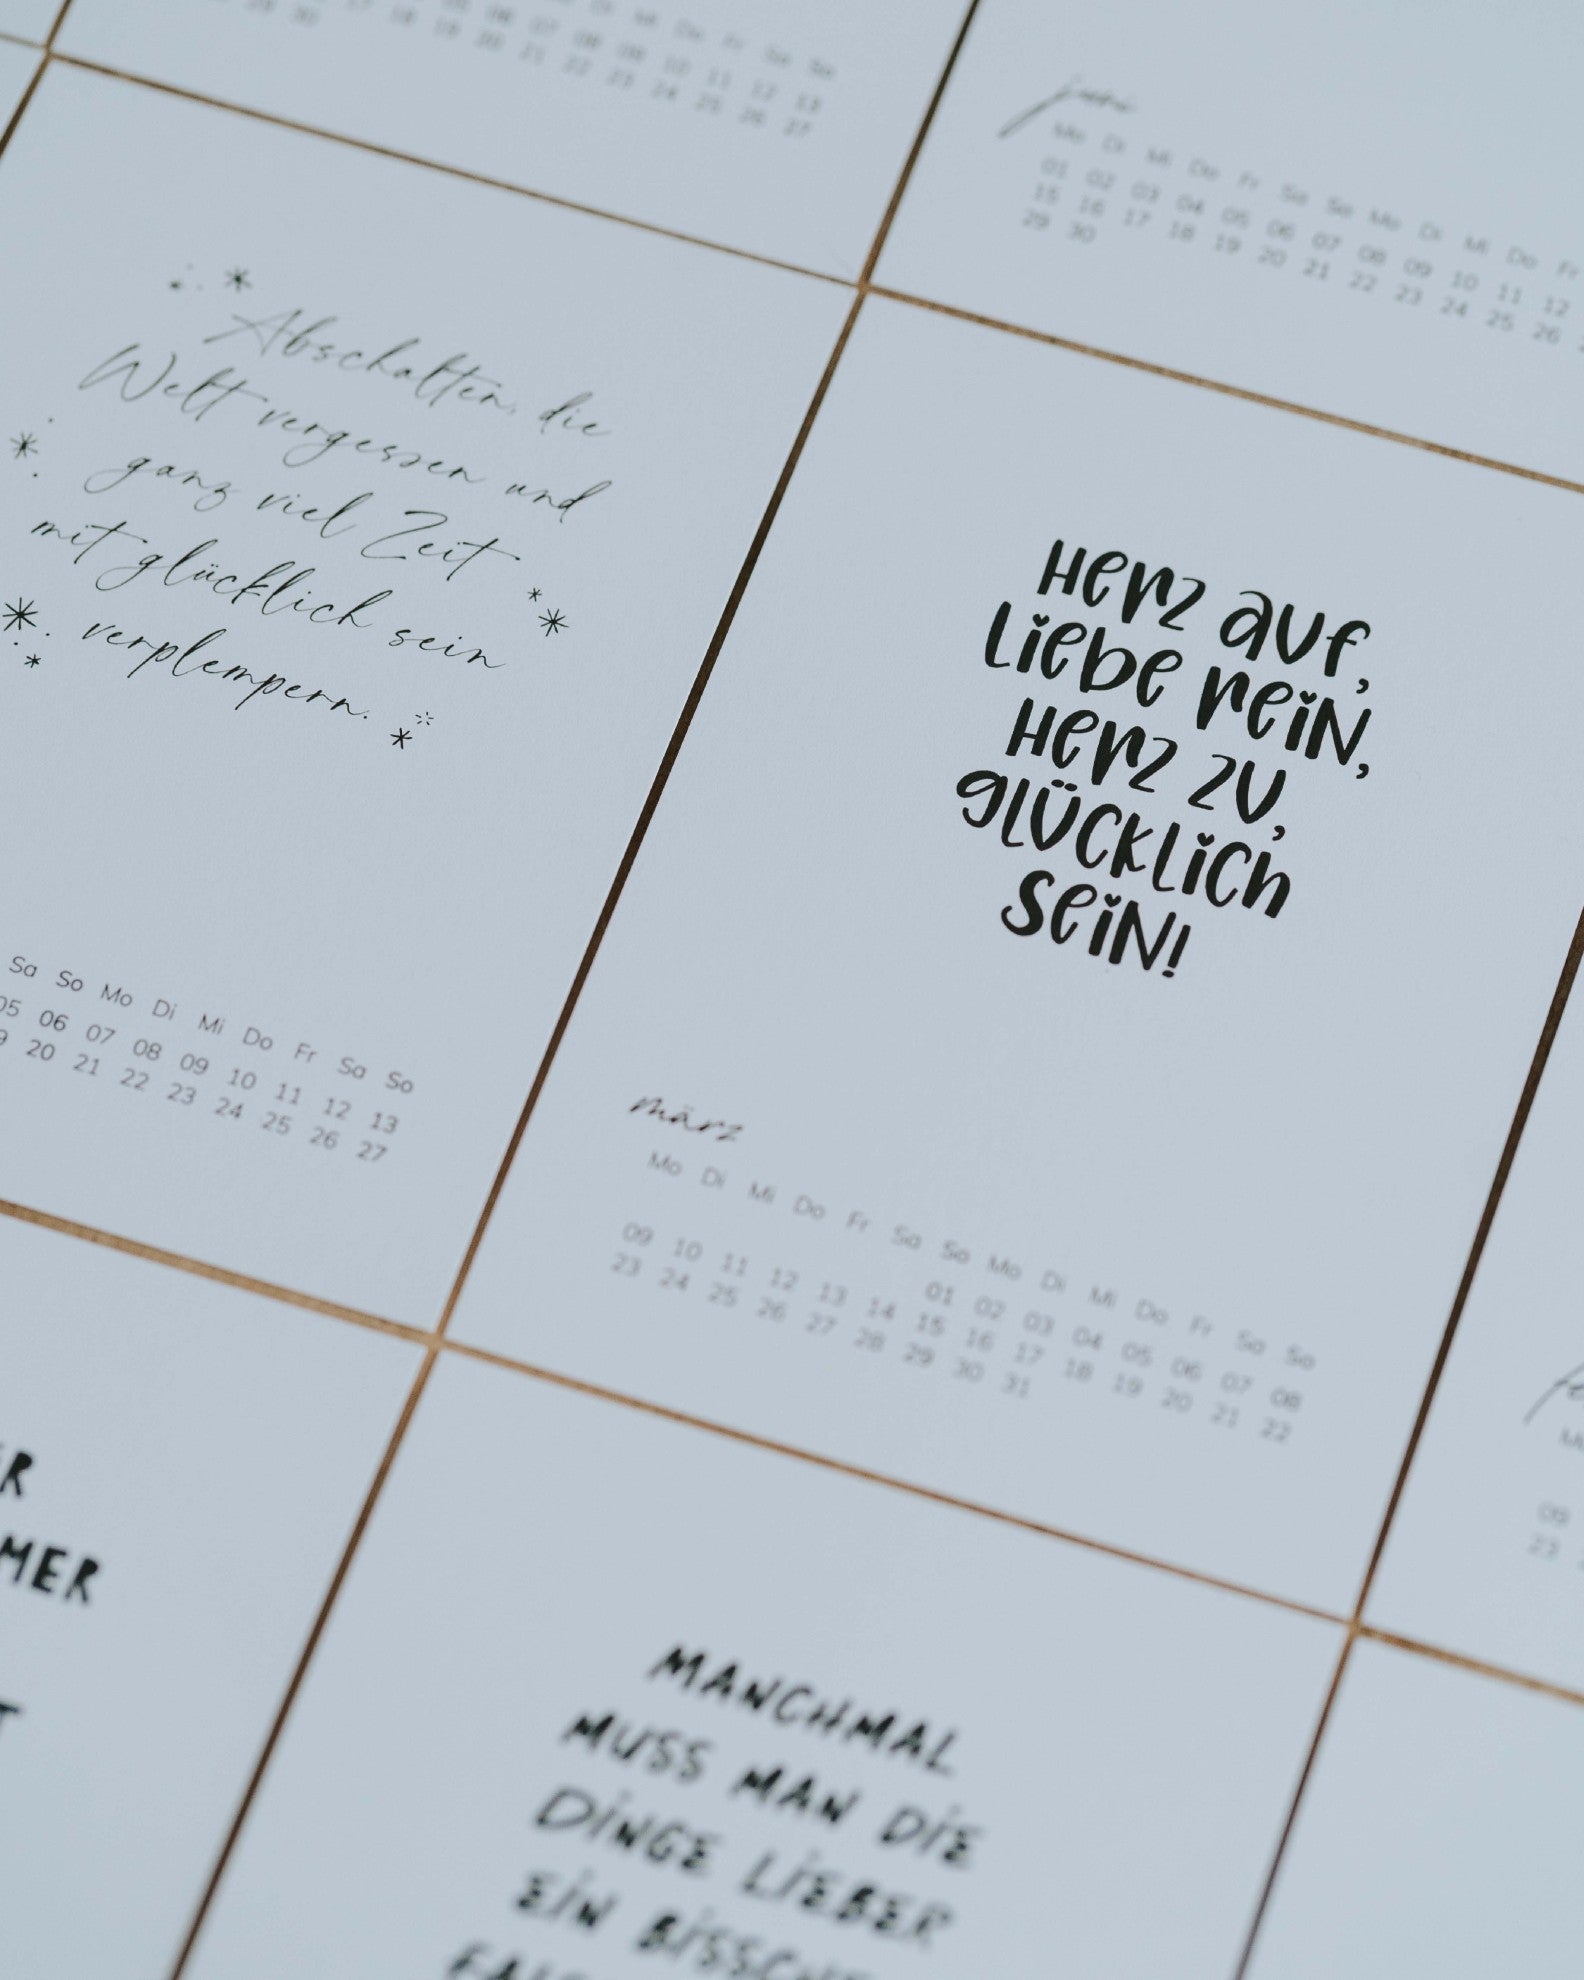 Di Mi Do Fr Sa So
06 07 08 09 10 11 12 13
17 18 19 20 21 22 23 24 25 26 27
29 30
juni
Mo Di Mi Do Fr Sa So Mo Di Mi Do Fr
01 02 03 04 05 06 07 08 09 10 11 12
15 16 17 18 19 20 21 22 23 24 25 26
29 30
Abschalten, die
Welt vergessen und
ganz viel Zeit
mit glücklich sein
verplempern.
Sa So Mo Di Mi Do Fr Sa So
05 06 07 08 09 10 11 12 13
20 21 22 23 24 25 26 27
Herz auf,
Liebe rein,
Herz zu,
glücklich
sein!
märz
Mo Di Mi Do Fr Sa So Mo Di Mi Do Fr Sa So
01 02 03 04 05 06 07 08
09 10 11 12 13 14 15 16 17 18 19 20 21 22
23 24 25 26 27 28 29 30 31
09
23
MANCHMAL
MUSS MAN DIE
DINGE LIEBER
EIN